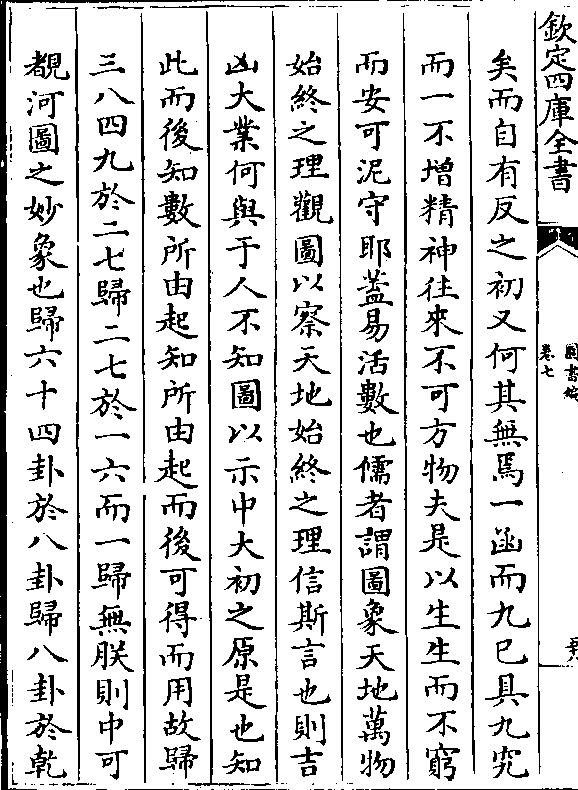 欽定四庫全書
圖書編
卷七
矣而自有反之初又何其無焉一函而九已具九究
而一不增精神往來不可方物夫是以生生而不窮
而安可泥守耶蓋易活數也儒者謂圖象天地萬物
始終之理觀圖以察天地始終之理信斯言也則吉
凶大業何與于人不知圖以示中大初之原是也知
此而後知數所由起知所由起而後可得而用故歸
三八四九於二七歸二七於一六而一歸無朕則中可
覩河圖之妙象也歸六十四卦於八卦歸八卦於乾